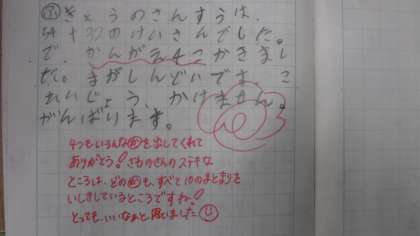 ㋫きょうのさんすうは、
54+32のけいさんでした。
で、かんがえ4こかきまし
た。まがしんどいです。こ
れいじょう、かけません。
がんばります。
4つもいろんな考を出してくれて
ありがとう!さわのさんのステキな
ところは、どの考も、すべて10のまとまりを
いしきしているところですね!
とっても、いいなぁと、思いました